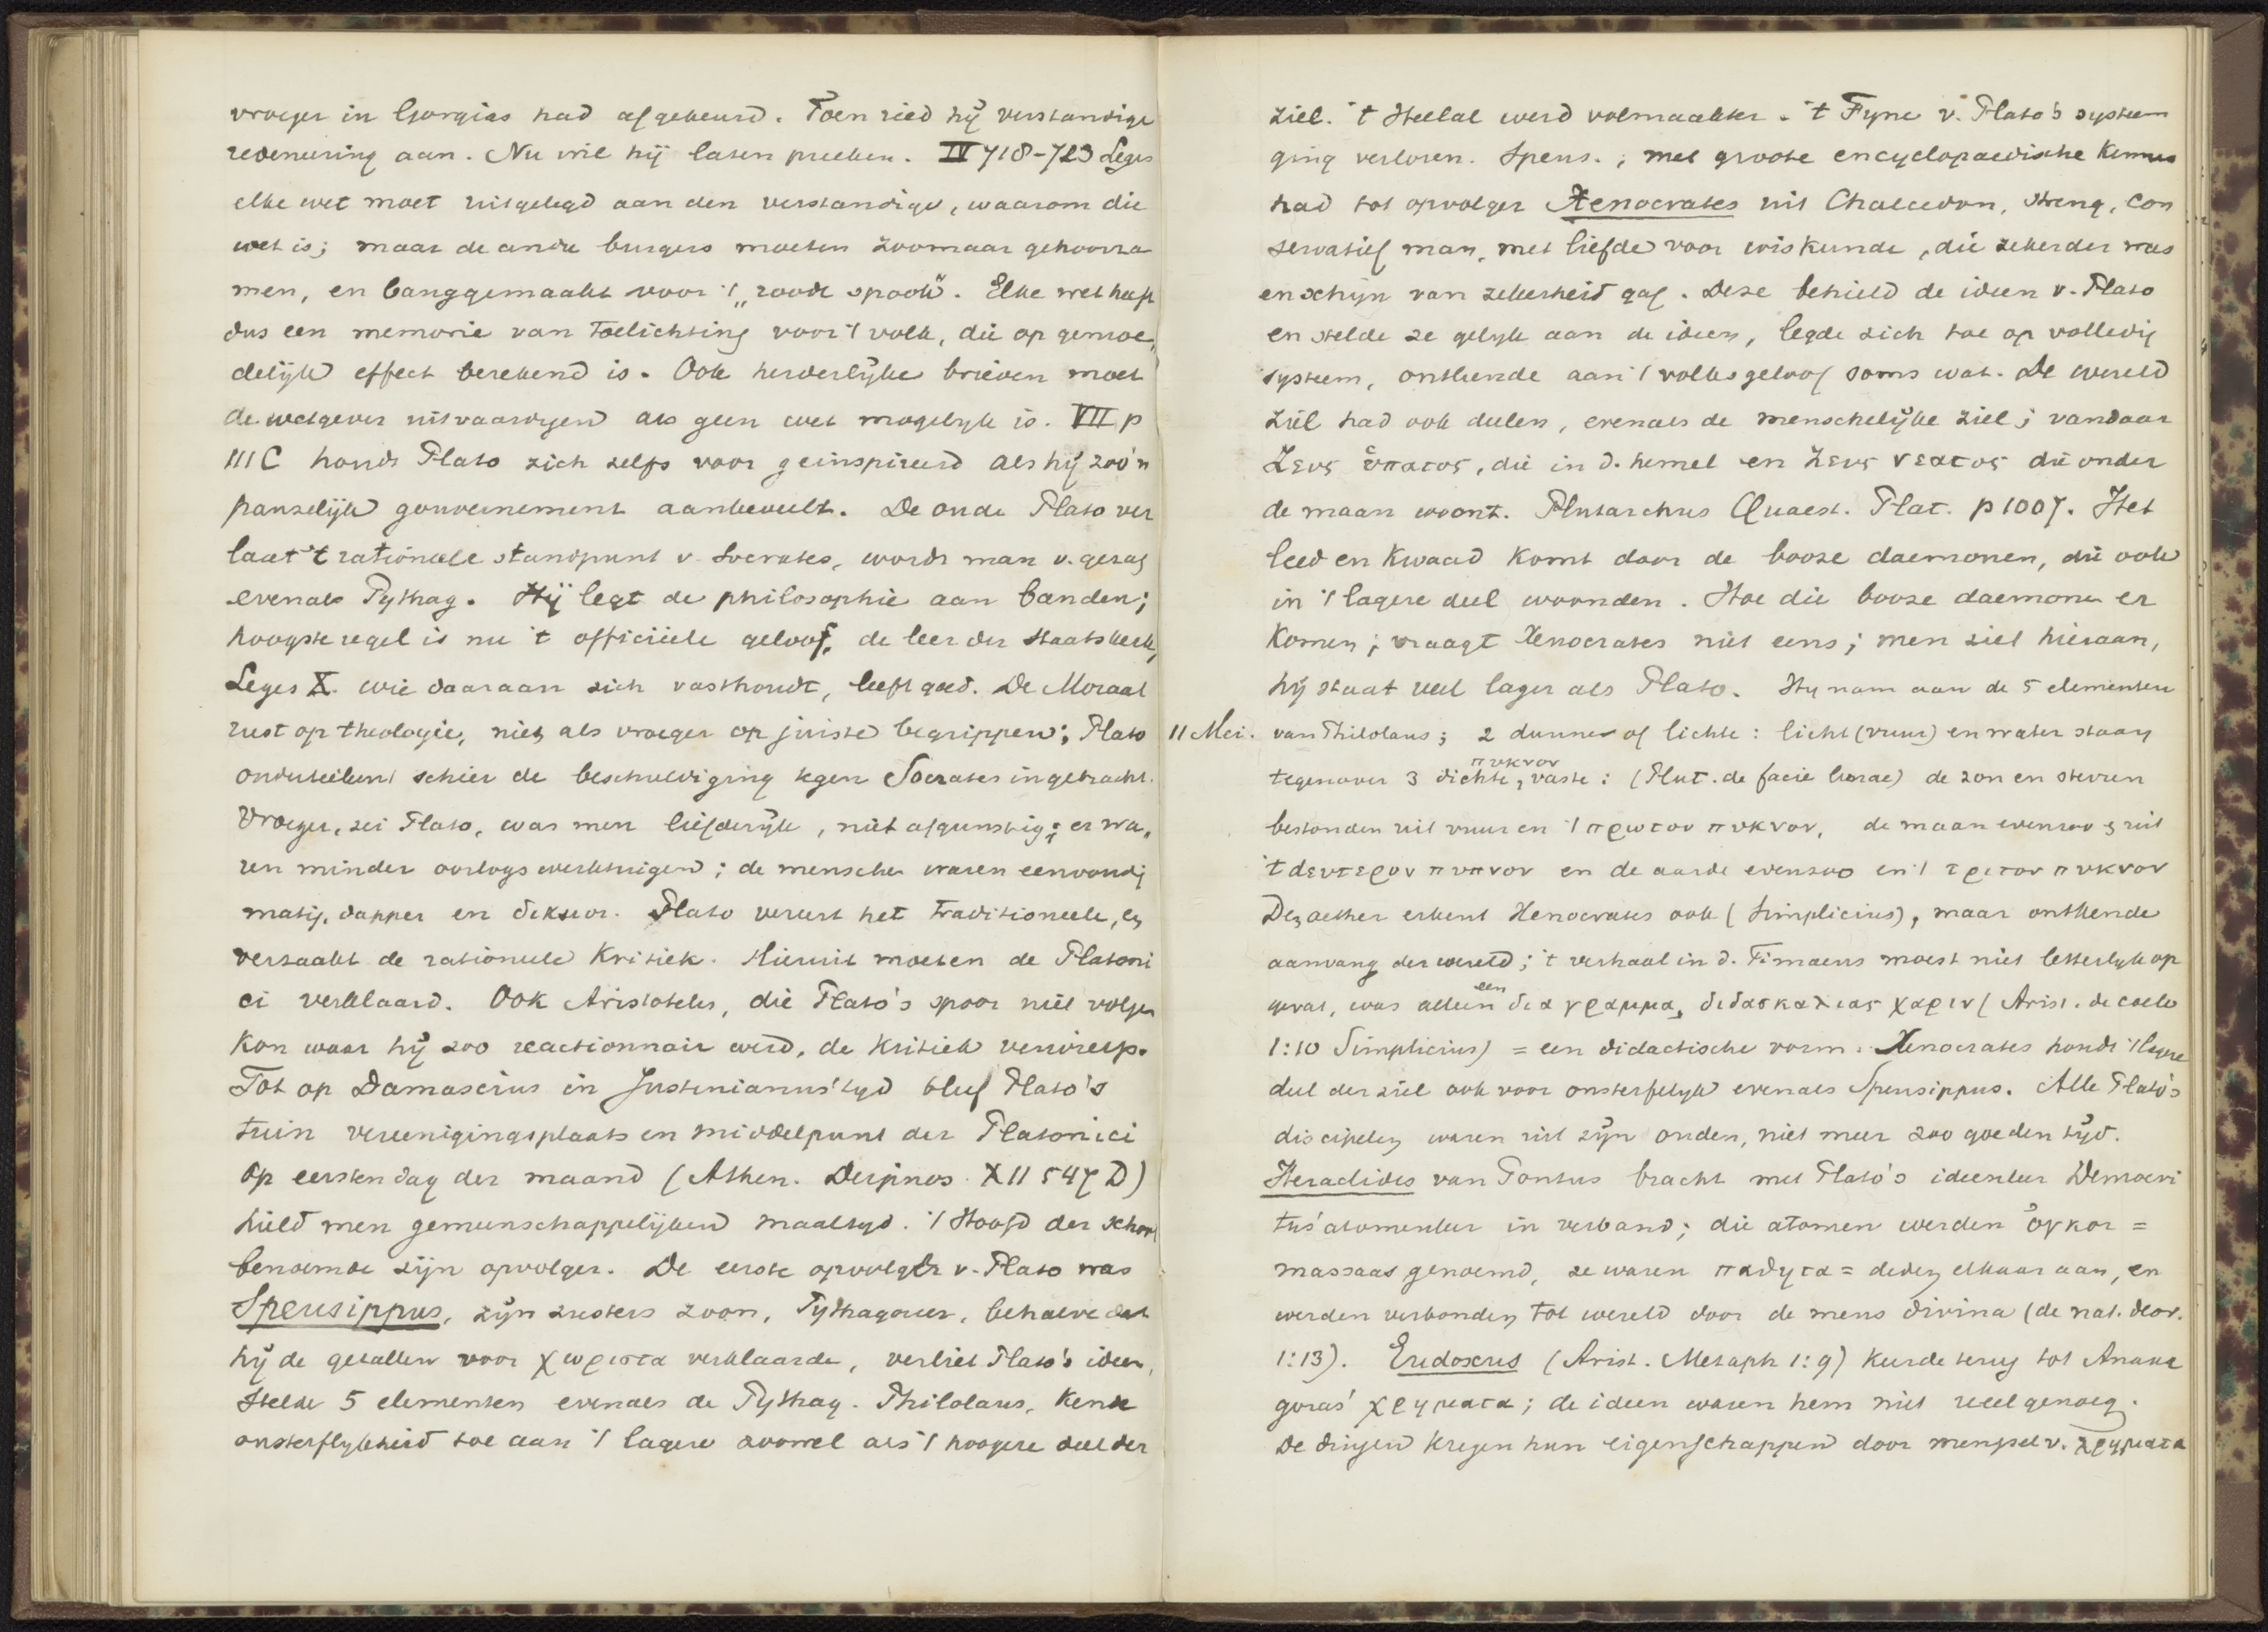 vroeger in Gorgias had afgekeurd. Toen ried hij verstandige
redeneering aan. Nu wil hij laten preeken. IV 718-723 Leges
elke wet moet uitgelegd aan den verstandige, waarom die
wet is; maar de andre burgers moeten zoomaar gehoorza
men, en banggemaakt voor 't „roode spook". Elke wet heeft
dus een memorie van toelichting voor 't volk, die op gemoe„
delijk effect berekend is. Ook herderlijke brieven moet
de wetgever uitvaardigen als geen wet mogelyk is. VII p
111 C houdt Plato zich zelfs voor geinspireerd als hij zoo'n
panselijk gouvernement aanbeveelt. De oude Plato ver
laat 't rationeele standpunt v. Socrates, wordt man v. gezag
evenals Pythag. Hij legt de philosophie aan banden;
hoogste regel is nu 't officiëele geloof, de leer der staatskerk,
Leges X. wie daaraan zich vasthoudt, leeft goed. De Moraal
rust op theologie, niet als vroeger op juiste begrippen; Plato
onderteekent schier de beschuldiging tegen Socrates ingebracht.
Vroeger, zei Plato, was men liefderijk, niet afgunstig; er wa„
ren minder oorlogswerktuigen; de menschen waren eenvoudig
matig, dapper en δικαιοι. Plato vereert het traditioneele, en
verzaakt de rationeele kritiek. Hieruit moeten de Platoni
ci verklaard. Ook Aristoteles, die Plato's spoor niet volgen
kon waar hij zoo reactionnair werd, de kritiek verwierp.
Tot op Damascius in Justinianus' tyd bleef Plato's
tuin vereenigingsplaats en middelpunt der Platonici
Op eersten dag der maand (Athen. Deipnos. XII 547 D)
hield men gemeenschappelijken maaltyd. 't Hoofd der school
benoemde zijn opvolger. De eerste opvolger v. Plato was
Speusippus, zijn zusters zoon, Pythagoreer, behalve dat
hij de getallen voor χωριστα verklaarde, verliet Plato's ideen,
stelde 5 elementen evenals de Pythag. Philolaus, kende
onsterflykheid toe aan 't lagere zoowel als 't hoogere deel der
ziel. 't Heelal werd volmaakter. 't Fyne v. Plato's systeem
ging verloren. Speus.; met groote encyclopaedische kennis
had tot opvolger Xenocrates uit Chalcedon, streng, con
servatief man, met liefde voor wiskunde, die zekerder was
en schijn van zekerheid gaf. Deze behield de ideen v. Plato
en stelde ze gelyk aan de ideen, legde zich toe op volledig
systeem, ontleende aan 't volksgeloof soms wat. De wereld
ziel had ook deelen, evenals de menschelijke ziel; vandaar
Ζευς ὑπατος, die in d. hemel en Ζευς νεατος die onder
de maan woont. Plutarchus Quaest. Plat. p 1007. Het
leed en kwaad komt door de booze daemonen, die ook
in 't lagere deel woonden. Hoe die booze daemonen er
komen; vraagt Xenocrates niet eens; men ziet hieraan,
hij staat veel lager als Plato. Hy nam aan de 5 elementen
11 Mei. van Philolaus; 2 dunne of lichte: licht (vuur) en water staan
πυκνον
tegenover 3 dichte, vaste: (Plut. de facie lunae) de zon en sterren
bestonden uit vuur en 't πρωτον πυκνον, de maan evenzoo uit
't δευτερον πυκνον en de aarde evenzoo en 't τριτον πυκνον
Den aether erkent Xenocrates ook (Simplicius), maar ontkende
aanvang der wereld; 't verhaal in d. Timaeus moest niet letterlyk op
gevat, was alleen een δια γραμμα, διδασκαλιας χαριν (Arist. de caelo
1:10 Simplicius) = een didactische vorm. Xenocrates houdt 't lagere
deel der ziel ook voor onsterfelyk evenals Speusippus. Alle Plato's
discipelen waren uit zijn ouden, niet meer zoo goeden tijd.
Heraclides van Pontus bracht met Plato's ideenleer Democri
tus' atomenleer in verband; die atomen werden ὀγκοι =
massaas genoemd, ze waren παθητα = deden elkaar aan, en
werden verbonden tot wereld door de mens divina (de nat. deor.
1:13). Eudoxus (Arist. Metaph 1:9) keerde terug tot Anaxa
goras' χρηματα; de ideen waren hem niet reëel genoeg.
De dingen kregen hun eigenschappen door mengsel v. χρηματα